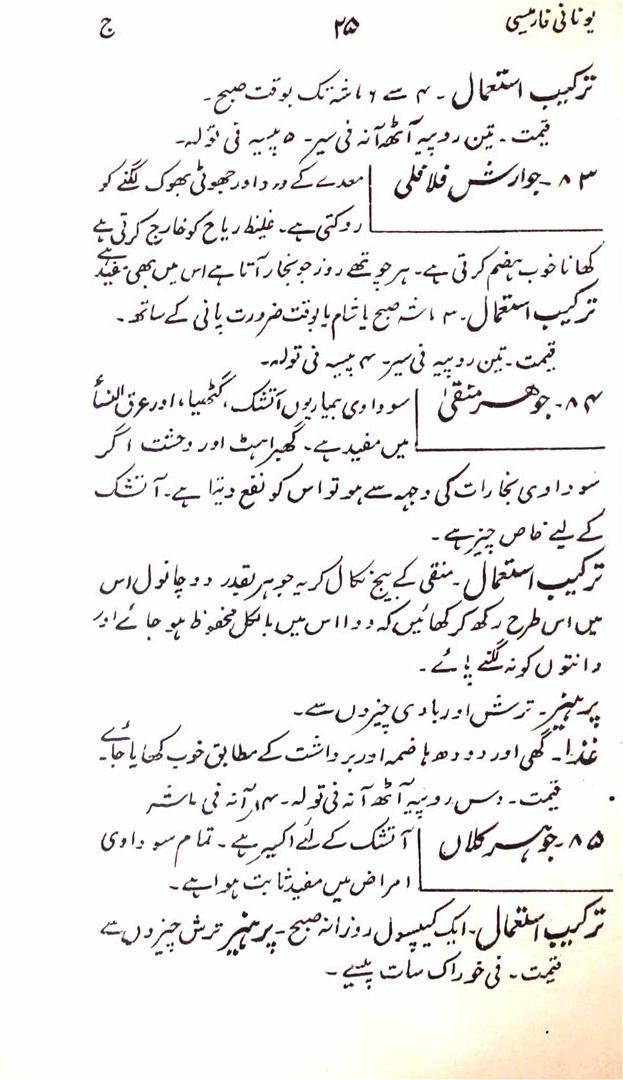 یونانی فارمیسی ۲۵ ج
ترکیب استعمال ۔ ۴ سے ۶ ماشہ تک بوقت صبح۔
قیمت ۔ تین روپیہ آٹھ آنہ فی سیر۔ ۵ پیسہ فی تولہ۔
۸۳ ۔ جوارش فلافلی معدے کے درد اور جھوٹی بھوک لگنے کو
روکتی ہے۔ غلیظ ریاح کو خارج کرتی ہے
کھانا خوب ہضم کرتی ہے۔ ہر چوتھے روز جو بخار آتا ہے اس میں بھی مفید ہے
ترکیب استعمال ۔ ۳ ماشہ صبح یا شام یا بوقت ضرورت پانی کے ساتھ ۔
قیمت ۔ تین روپیہ فی سیر۔ ۴ پیسہ فی تولہ۔
۸۴ ۔ جوهر منقیٰ سوداوی بیماریوں آتشک، گٹھیا، اور عرق النسأ
میں مفید ہے۔ گھبراہٹ اور وحشت اگر
سوداوی بخارات کی وجہہ سے ہو تو اس کو نفع دیتا ہے۔ آتشک
کے لیے خاص چیز ہے ۔
ترکیب استعمال ۔ منقی کے بیج نکال کر یہ جوہر بقدر دو چانول اس
میں اس طرح رکھ کر کھائیں کہ دوا اس میں بالکل محفوظ ہو جائے اور
دانتوں کو نہ لگنے پائے ۔
پرہیز ۔ ترش اور بادی چیزوں سے۔
غذا ۔ گھی اور دودھ ہاضمہ اور برداشت کے مطابق خوب کھایا جائے۔
قیمت ۔ دس روپیہ آٹھ آنہ فی تولہ۔ ۱۴ آنہ فی ماشہ
۸۵ ۔ جوہر کلاں آتشک کے لئے اکسیر ہے ۔ تمام سوداوی
امراض میں مفید ثابت ہوا ہے۔
ترکیب استعمال ۔ ایک کیپسول روزانہ صبح ۔ پرہیز ترش چیزوں سے
قیمت ۔ فی خوراک سات پیسے ۔